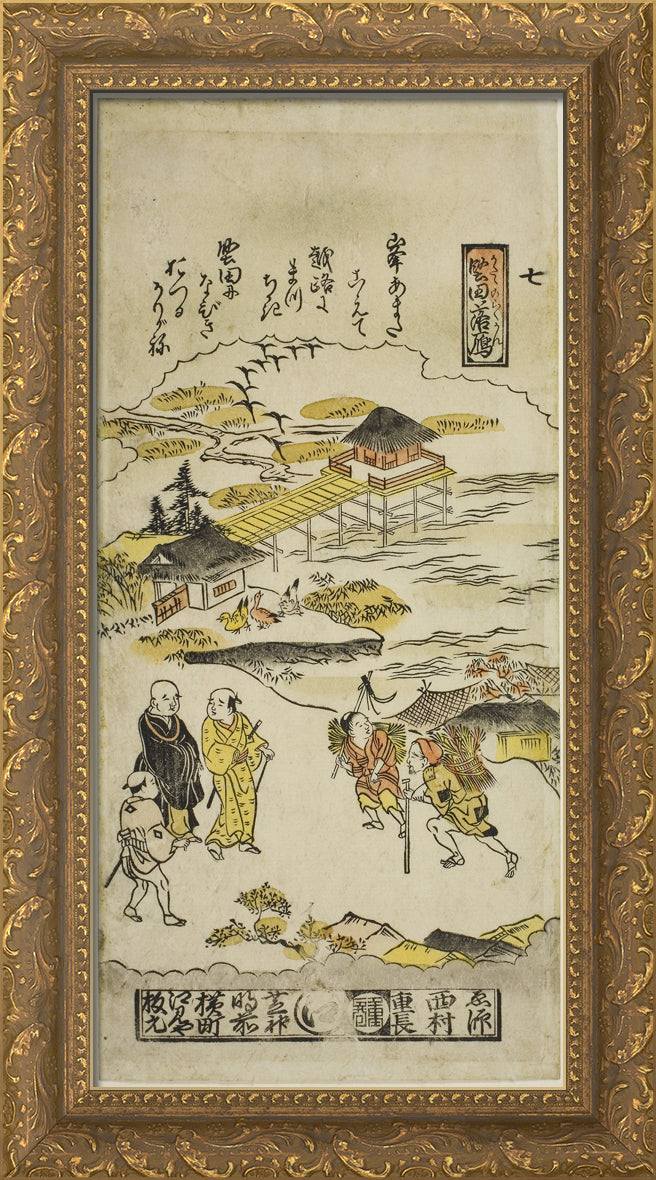 七
堅田落鴈
かたたのらくがん
峯あまた
こえて
越路に
まつ
ちかき
堅田に
なびき
おつる
かりがね
ゑ師
西村
重長
芝神
明前
横町
江見や
板元